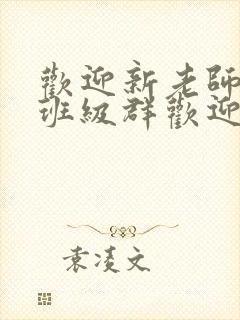 歡迎新老師
班級群歡迎
袁凌文